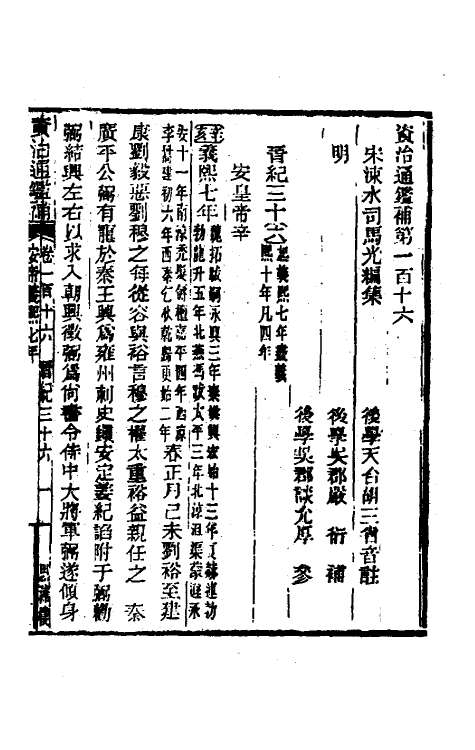 資治通鑑補第一百十六
宋涑水司馬光編集
後學天台胡三省音註
明
後學吳郡嚴衍補
後學吳郡談允厚參
晉紀三十六起義熙七年盡義
熙十年凡四年
安皇帝辛
辛
亥義熙七年魏拓跋嗣永興三年秦姚興弘始十三年夏赫連勃
勃龍升五年北燕馮跋太平三年北涼沮渠蒙遜永
安十一年南涼禿髮傉檀嘉平四年西涼
李暠建初六年西秦乞伏乾歸更始三年春正月己未劉裕至建
康劉毅惡劉穆之每從容與裕言穆之權太重裕益親任之 秦
廣平公弼有寵於秦王興爲雍州刺史鎮安定姜紀諂附于弼勸
弼結興左右以求入朝興徵弼爲尚書令侍中大將軍弼遂傾身
資治通鑑補 卷一百十六 晉紀三十六 一
安帝義熙七年